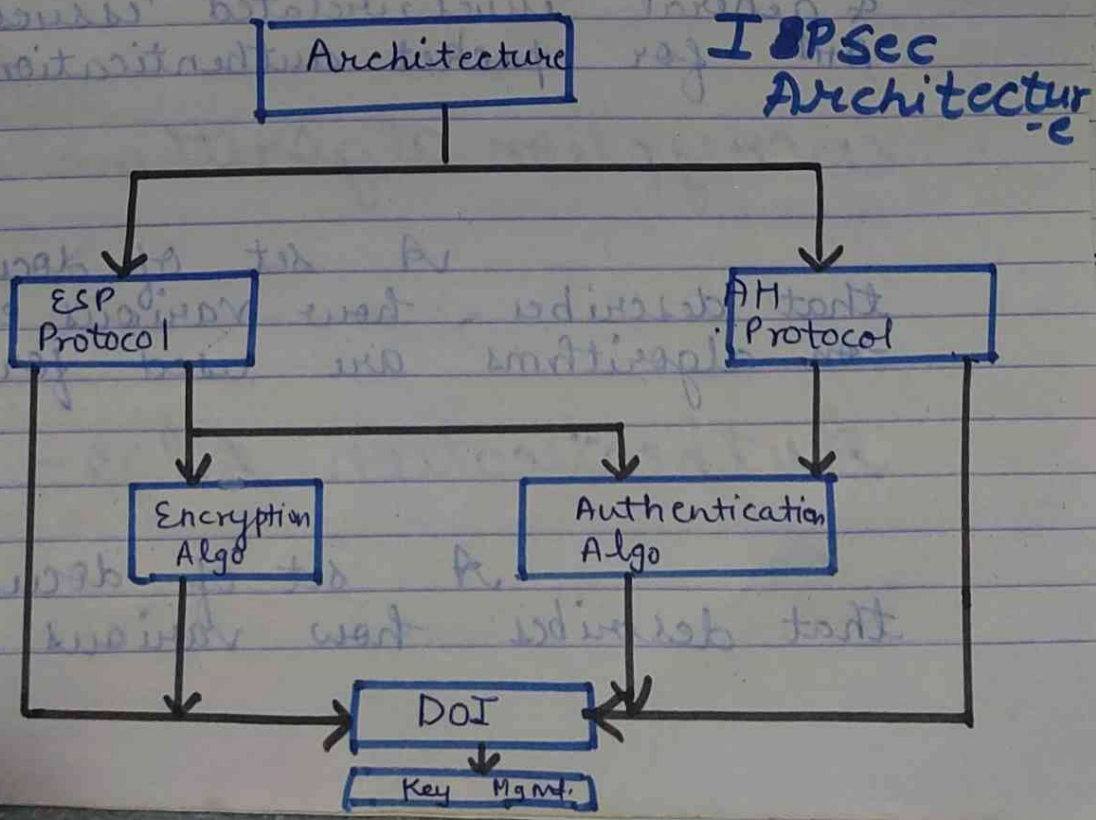 Architecture
IPSec
Architectur
-e
ESP
Protocol
AH
Protocol
Encryption
Algo
Authentication
Algo
DOI
Key Mgmt.